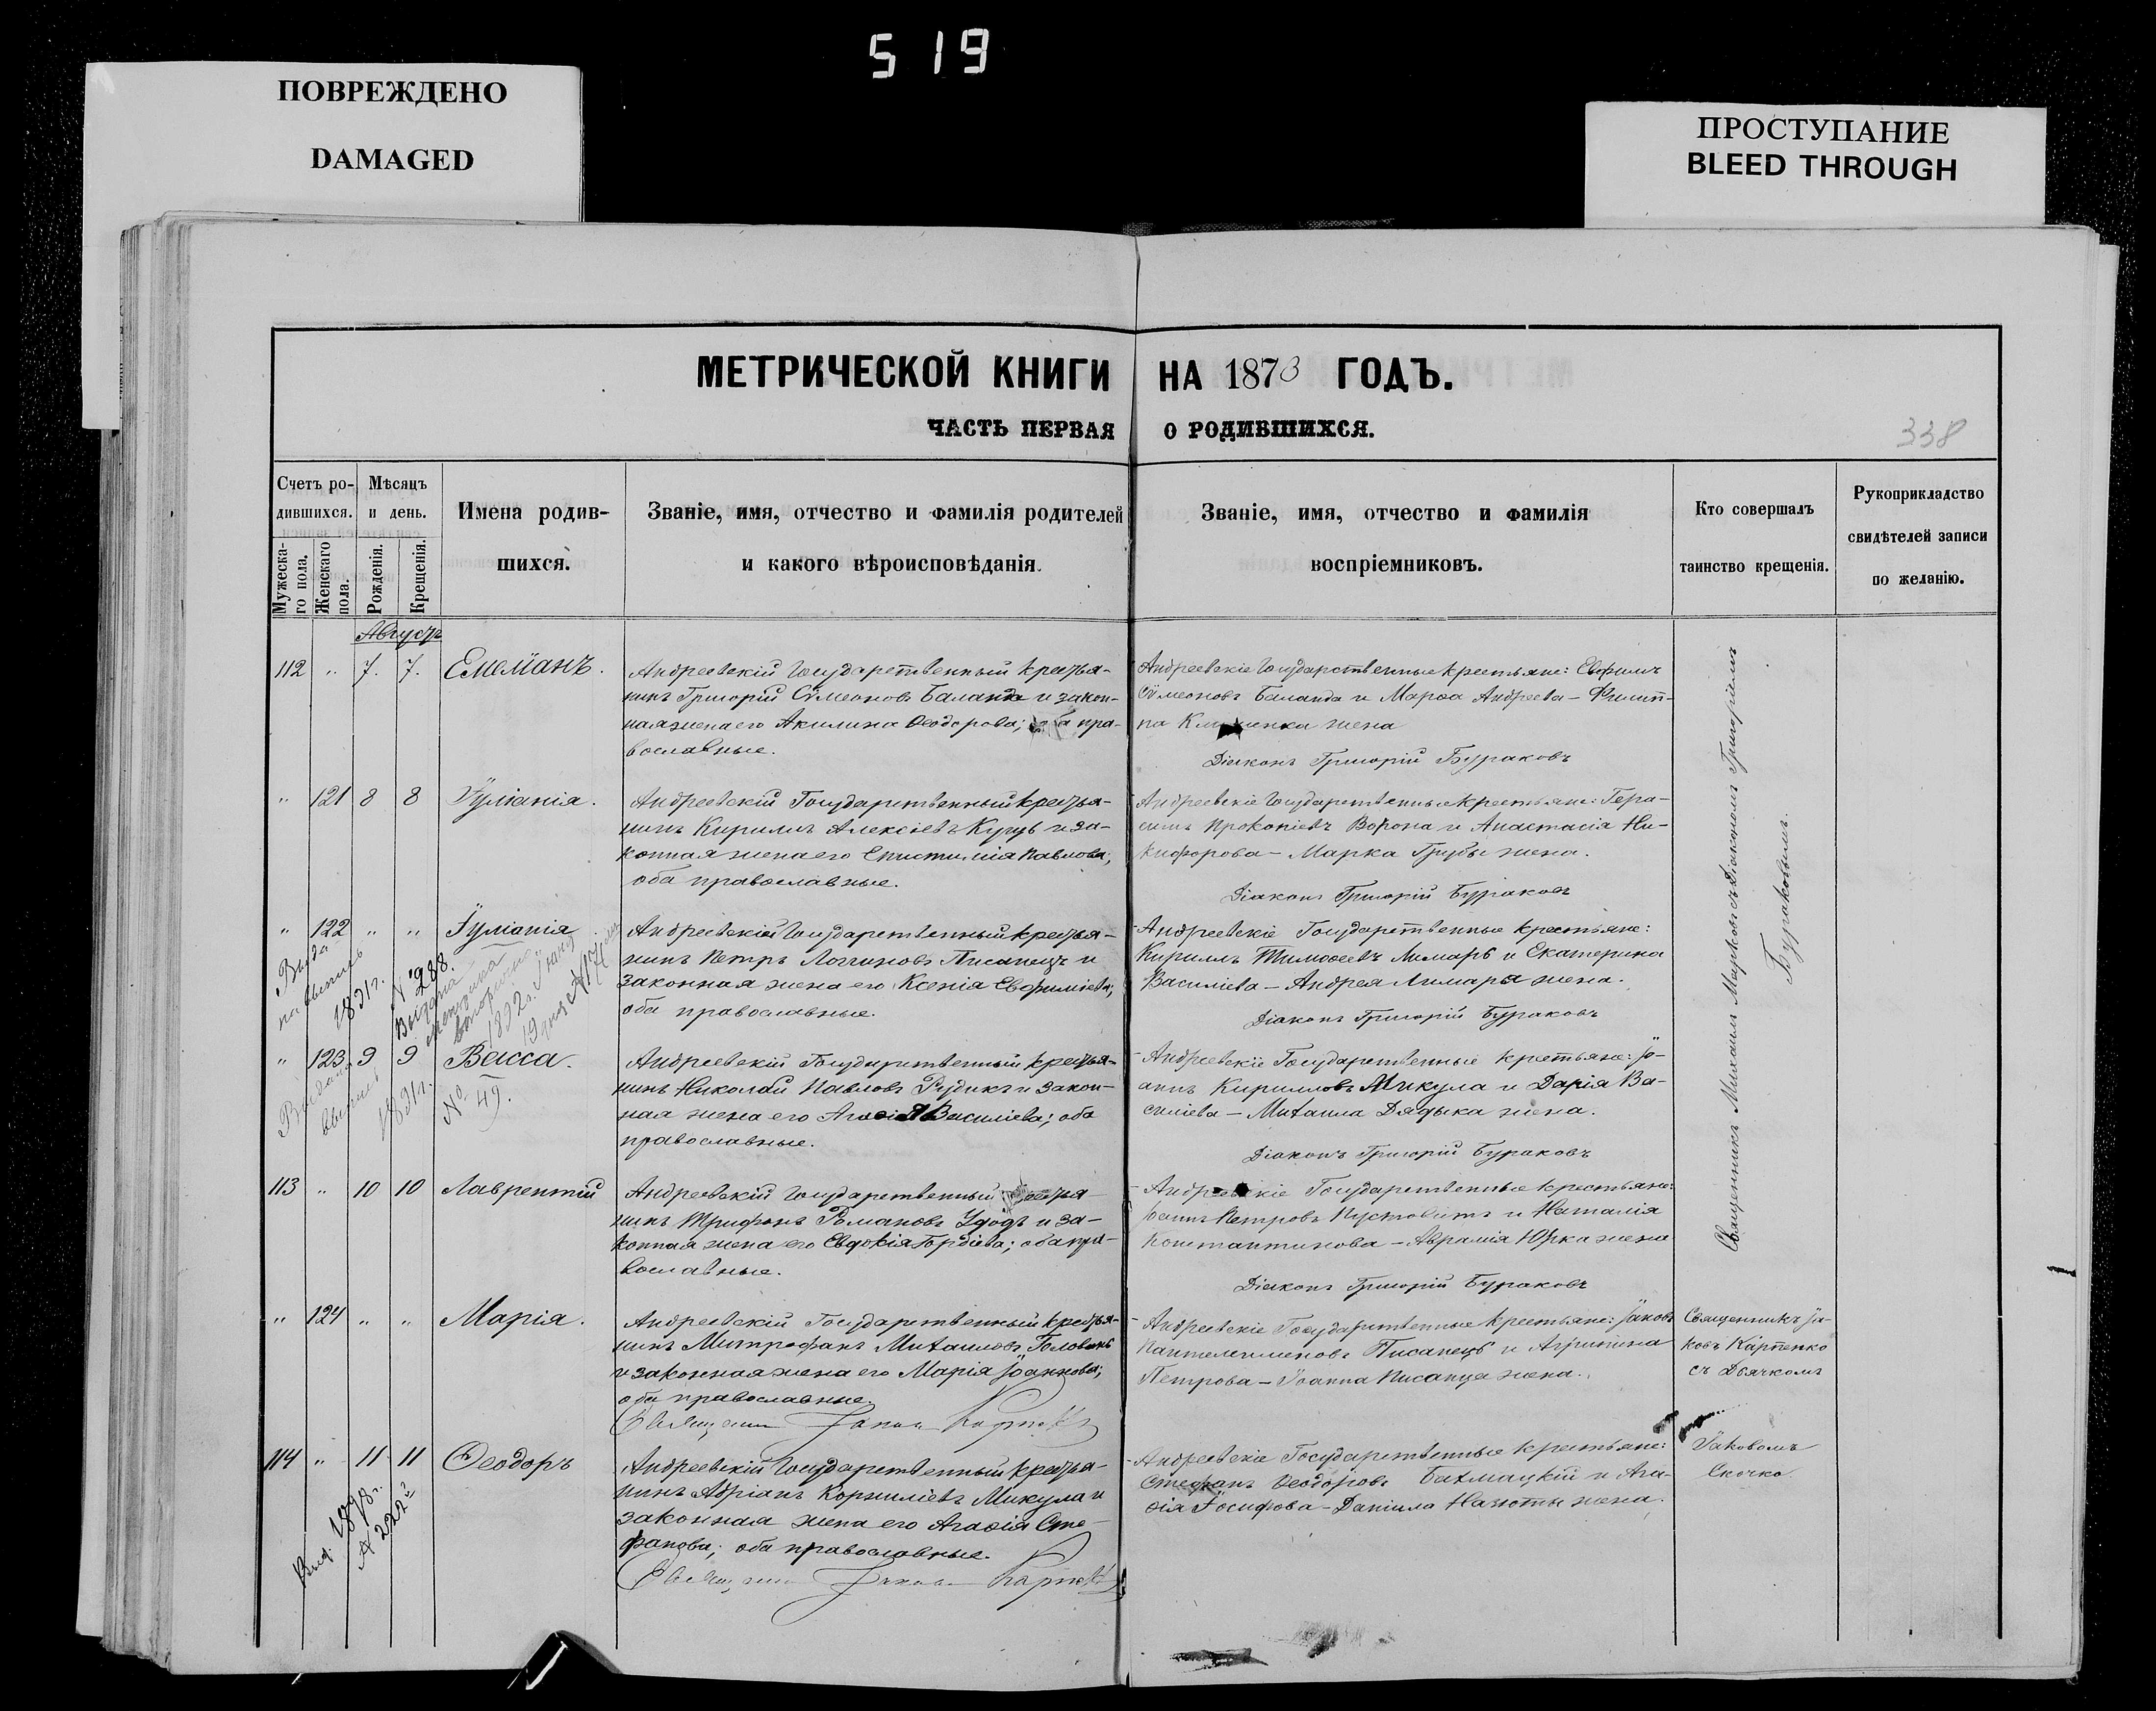 519
ПОВРЕЖДЕНО
DAMAGED
ПРОСТУПАНИЕ
BLEED THROUGH
МЕТРИЧЕСКОЙ КНИГИ НА 1873 ГОДЪ.
ЧАСТЬ ПЕРВАЯ О РОДИВШИХСЯ.
338
Счетъ ро-
дившихся.
Мужеска-
го пола.
Женскаго
пола.
Мѣсяцъ
и день.
Рожденія.
Крещенія.
Имена родив-
шихся.
Званіе, имя, отчество и фамилія родителей
и какого вѣроисповѣданія.
Званіе, имя, отчество и фамилія
воспріемниковъ.
Кто совершалъ
таинство крещенія.
Рукоприкладство
свидѣтелей записи
по желанію.
Августъ
112 " 7. 7. Емеліанъ.
Андреевскій Государственный кресть-
нинъ Григорій Сѵмеоновъ Баланда и закон-
ная жена его Акилина Ѳеодорова; оба пра-
вославные.
Андреевскіе Государственные крестьяне: Евфимъ
Сѵмеоновъ Баланда и Марѳа Андреева – Филип-
па жена
Діаконъ Григорій Бураковъ
" 121 8 8 Іуліанія.
Андреевскій Государственный крестья-
нинъ Кириллъ Алексіевъ и за-
конная жена его Епистимія Павлова;
оба православные.
Андреевскіе Государственные крестьяне: Гера-
симъ Прокопіевъ Ворона и Анастасія Ни-
кифорова – Марка Грубы жена.
Діаконъ Григорій Бураковъ
" 122 " " Іуліанія
Андреевскій Государственный крестья-
нинъ Петръ Логгиновъ Писанецъ и
законная жена его Ксенія Евфиміева;
оба православные.
Андреевскіе Государственные крестьяне:
Кириллъ Тимоѳеевъ Лимарь и Екатерина
Василіева – Андрея Лимаря жена.
Діаконъ Григорій Бураковъ
1891 г.
№ 288.
Выдана
вторично
1892 г.
" 123 9 9 Васса.
Андреевскій Государственный крестья-
нинъ Николай Павловъ Рудикъ и закон-
ная жена его Агаѳія Василіева; оба
православные.
Андреевскіе Государственные крестьяне: Іо-
аннъ Кирилловъ Микула и Дарія Ва-
силіева – Михаила Дядыка жена.
Діаконъ Григорій Бураковъ
Выдана
1891 г.
№ 49.
113 " 10 10 Лаврентій
Андреевскій Государственный крестья-
нинъ Трифонъ Романовъ Удодъ и за-
конная жена его Евдокія Гордіева; оба пра-
вославные.
Андреевскіе Государственные крестьяне:
Іоаннъ Петровъ Пустовитъ и Наталія
Константинова – Аврамія Юрка жена
Діаконъ Григорій Бураковъ
Священникъ Михаилъ Марковъ съ Діакономъ Григоріемъ
Бураковымъ.
" 124 " " Марія.
Андреевскій Государственный крестья-
нинъ Митрофанъ Михаиловъ Головань
и законная жена его Марія Іоаннова;
оба православные.
Священникъ Іаковъ Карпенко
Андреевскіе Государственные крестьяне: Іаковъ
Пантелеимоновъ Писанецъ и Агрипина
Петрова – Іоанна Писанца жена.
Священникъ Іа-
ковъ Карпенко
съ Дьячкомъ
Іаковомъ
Скочко.
114 " 11 11 Ѳеодоръ
Андреевскій Государственный крестья-
нинъ Адріанъ Корниліевъ Микула и
законная жена его Агаѳія Сте-
фанова; оба православные.
Священникъ Іаковъ Карпенко
Андреевскіе Государственные крестьяне:
Стефанъ Ѳеодоровъ Бахмацкій и Ага-
ѳія Іосифова – Даніила жена.
Выд. 1898 г.
№ 222